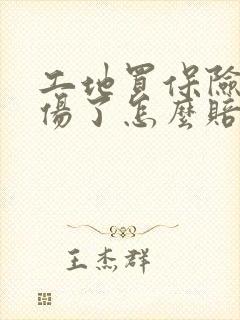 工地買保險
傷了怎麼賠
王杰群